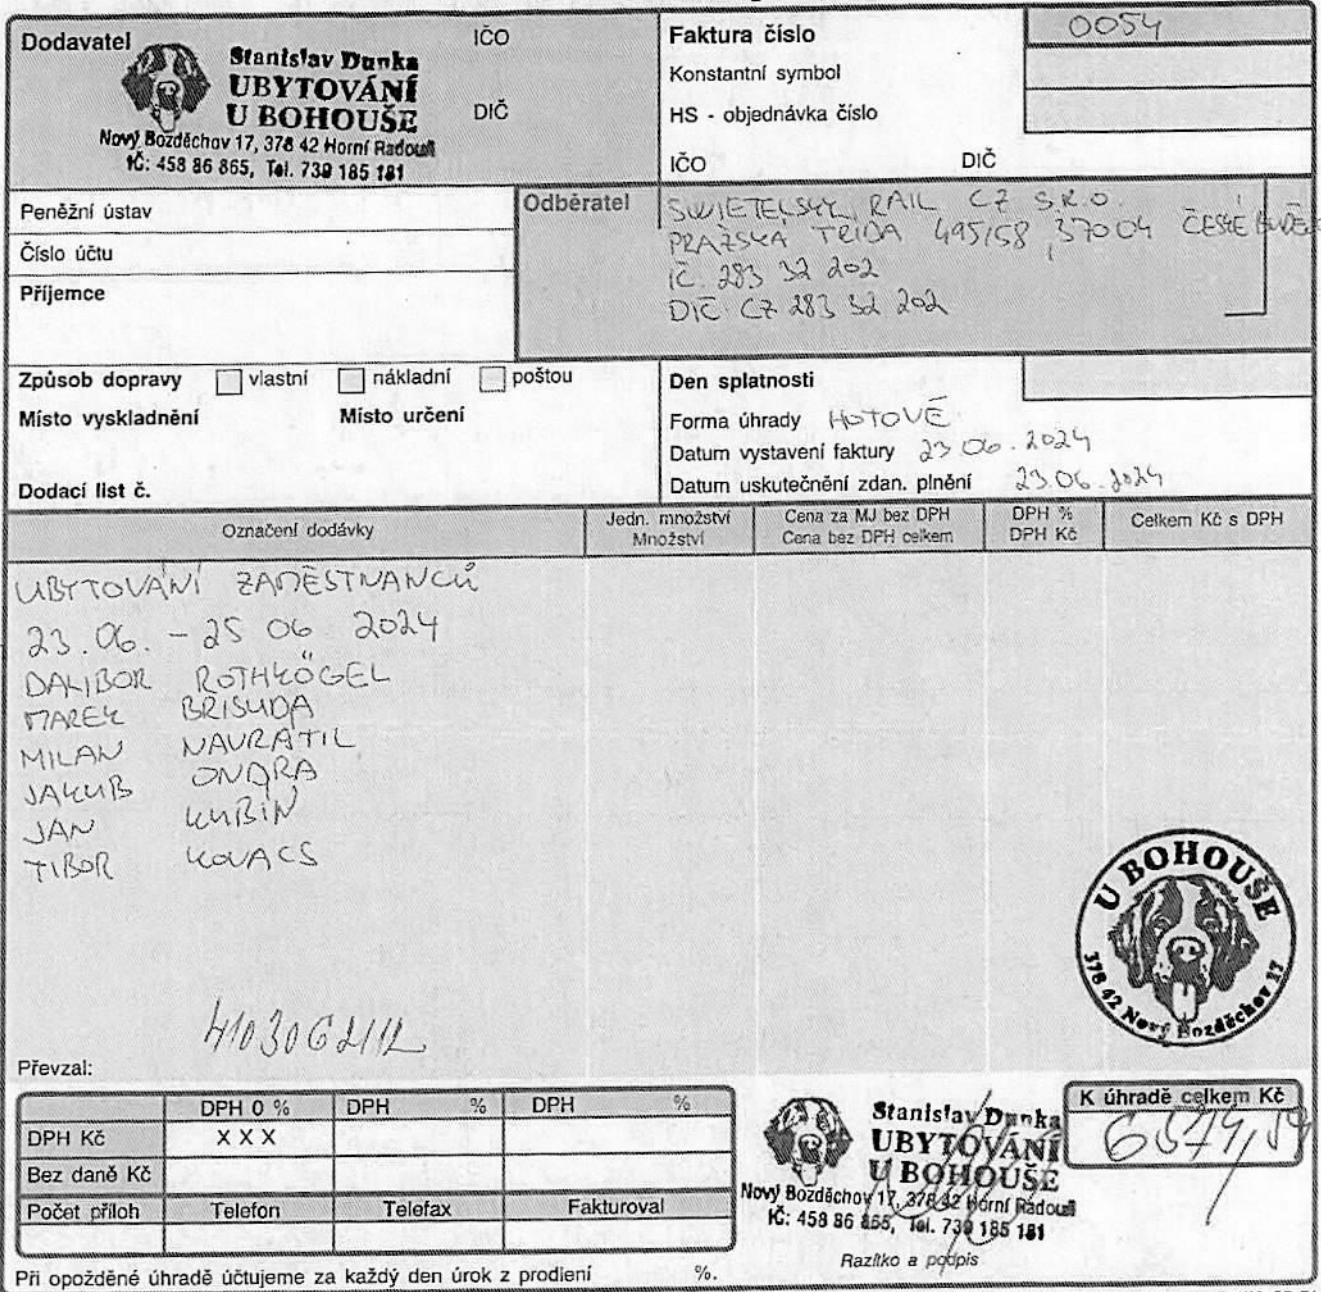 Dodavatel
Stanislav Dunka
UBYTOVÁNÍ
U BOHOUŠE
Nový Bozděchov 17, 378 42 Horní Radouň
IČ: 458 86 865, Tel. 739 185 181
IČO
DIČ
Faktura číslo 0054
Konstantní symbol
HS - objednávka číslo
IČO DIČ
Peněžní ústav
Číslo účtu
Příjemce
Odběratel
SWIETELSKY RAIL CZ S.R.O.
PRAŽSKÁ TŘIDA 495/58, 37004 ČESKÉ
IČ. 283 32 202
DIČ CZ 283 32 202
Způsob dopravy vlastní nákladní poštou
Místo vyskladnění Místo určení
Dodací list č.
Den splatnosti
Forma úhrady HOTOVĚ
Datum vystavení faktury 23.06.2024
Datum uskutečnění zdan. plnění 23.06.2024
Označení dodávky
Jedn. množství
Množství
Cena za MJ bez DPH
Cena bez DPH celkem
DPH %
DPH Kč
Celkem Kč s DPH
UBYTOVÁNÍ ZAMĚSTNANCŮ
23.06. - 25 06 2024
DALIBOR ROTHKÖGEL
MAREK BRISUDA
MILAN NAVRATIL
JAKUB ONDRA
JAN KUBÍN
TIBOR KOVACS
U BOHOUŠE
378 42 Nový Bozděchov 17
Převzal:
DPH 0 % DPH % DPH %
DPH Kč X X X
Bez daně Kč
Počet příloh Telefon Telefax Fakturoval
Stanislav Dunka
UBYTOVÁNÍ
U BOHOUŠE
Nový Bozděchov 17, 378 42 Horní Radouň
IČ: 458 86 865, Tel. 739 185 181
Razítko a podpis
K úhradě celkem Kč
Při opožděné úhradě účtujeme za každý den úrok z prodlení %.